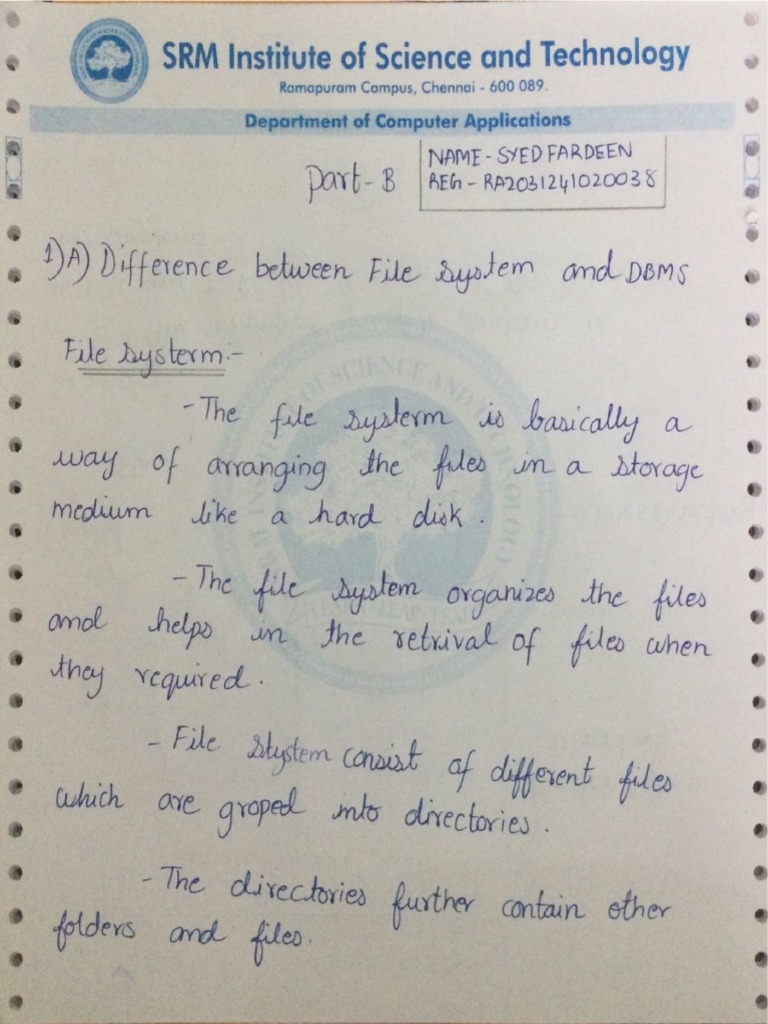 SRM Institute of Science and Technology
Ramapuram Campus, Chennai - 600 089.
Department of Computer Applications
Part-B
NAME - SYED FARDEEN
REG - RA2031241020038
1)A) Difference between File system and DBMS
File systerm:-
- The file systerm is basically a
way of arranging the files in a storage
medium like a hard disk.
- The file system organizes the files
and helps in the retrival of files when
they required.
- File stystem consist of different files
which are groped into directories.
- The directories further contain other
folders and files.